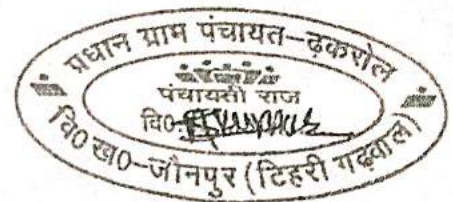 प्रधान ग्राम पंचायत–ढ़करोल
पंचायती राज
वि०
वि०ख०–जौनपुर (टिहरी गढ़वाल)